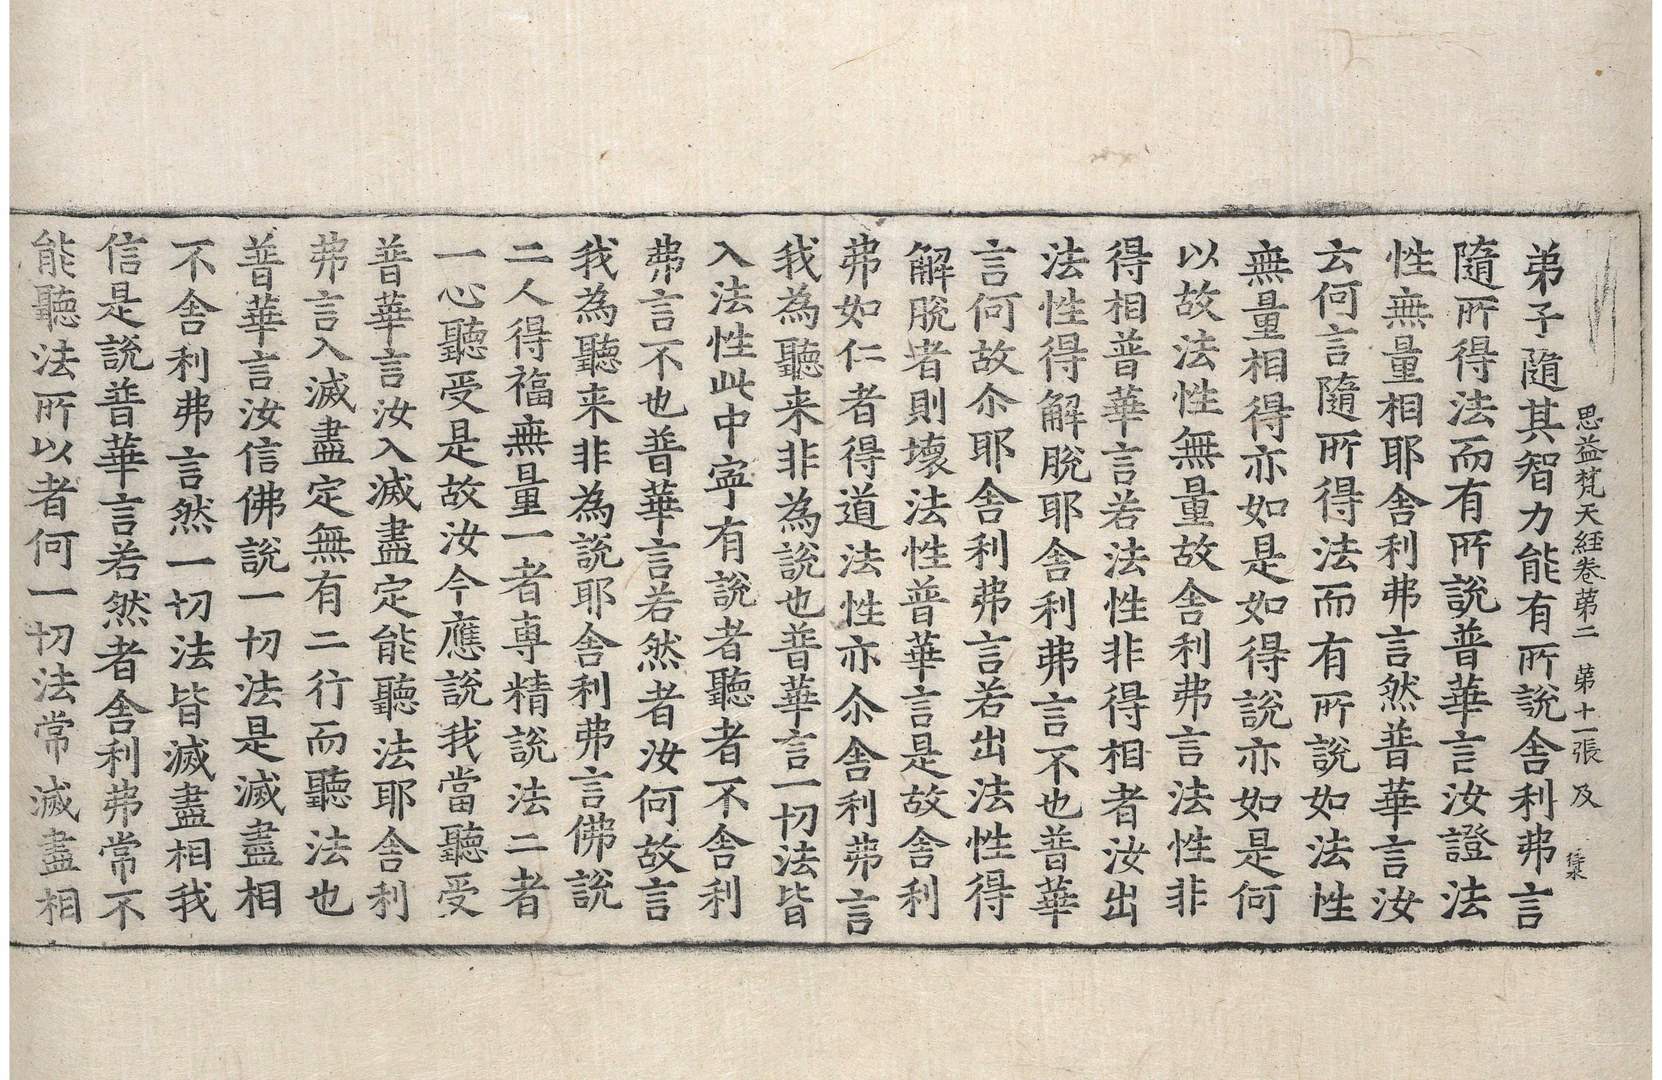 思益梵天経卷苐二 苐十一張 及
弟子隨其智力能有所說舎利弗言
隨所得法而有所說普華言汝證法
性無量相耶舎利弗言然普華言汝
云何言隨所得法而有所說如法性
無量相得亦如是如得說亦如是何
以故法性無量故舎利弗言法性非
得相普華言若法性非得相者汝出
法性得解脫耶舎利弗言不也普華
言何故尒耶舎利弗言若出法性得
解脫者則壞法性普華言是故舎利
弗如仁者得道法性亦尒舎利弗言
我為聽来非為說也普華言一切法皆
入法性此中寜有說者聽者不舎利
弗言不也普華言若然者汝何故言
我為聽来非為說耶舎利弗言佛說
二人得福無量一者專精說法二者
一心聽受是故汝今應說我當聽受
普華言汝入滅盡定能聽法耶舎利
弗言入滅盡定無有二行而聽法也
普華言汝信佛說一切法是滅盡相
不舎利弗言然一切法皆滅盡相我
信是說普華言若然者舎利弗常不
能聽法所以者何一切法常滅盡相